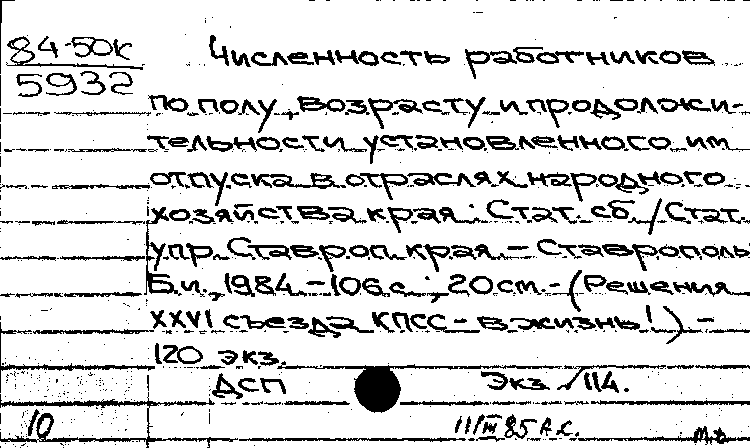 84-50к
5932
Численность работников
по полу, возрасту и продолжи-
тельности установленного им
отпуска в отраслях народного
хозяйства края : Стат. сб. / Стат.
упр. Ставроп. края. – Ставрополь
Б.и., 1984. – 106 с. ; 20 см. – (Решения
XXVI съезда КПСС – в жизнь!) –
120 экз.
ДСП Экз. √ 114.
10 11/III 85